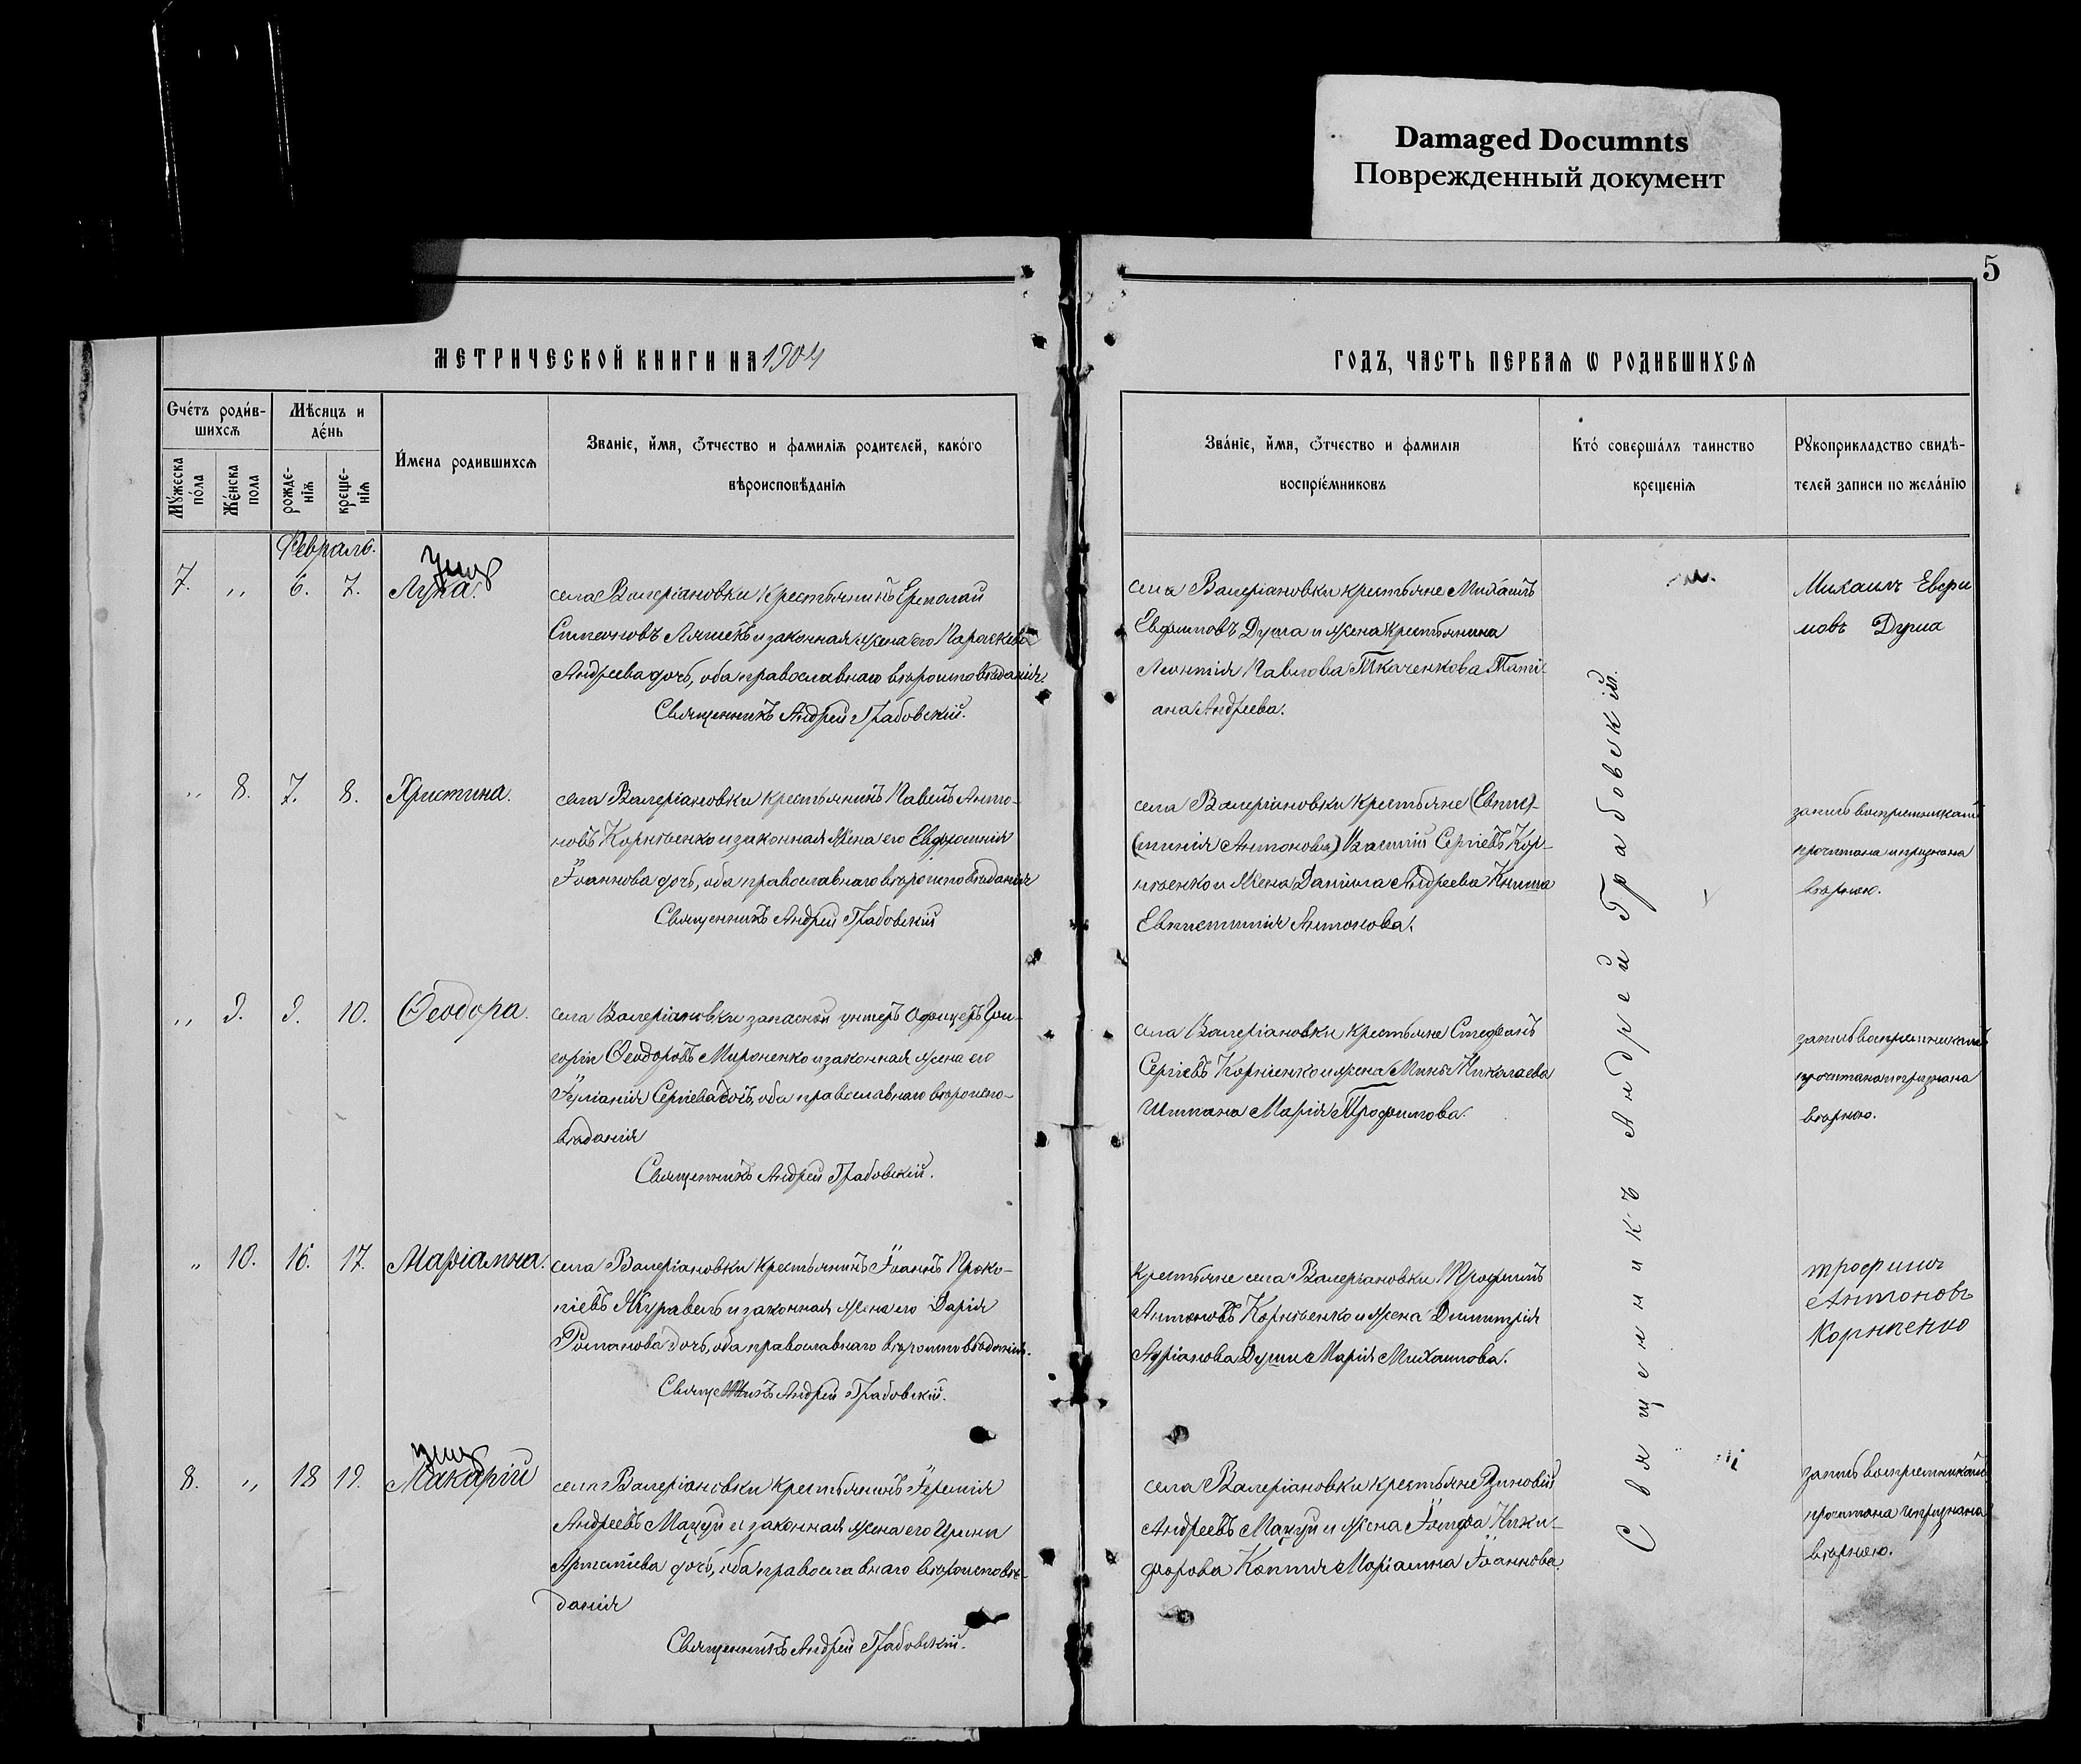 Damaged Documnts
Поврежденный документ
5
МЕТРИЧЕСКОЙ КНИГИ НА 1904
ГОДЪ, ЧАСТЬ ПЕРВАѦ Ѡ РОДИВШИХСѦ
Счéтъ роди́в-
шихсѧ
Мѣсяцъ и
де́нь
И́мена родившихсѧ
Званіе, и́мя, ѻ́тчество и фамиліѧ родителей, како́го
вѣроисповѣ́данїѧ
Мꙋ́жеска
по́ла
Же́нска
пола
рожде-
нїѧ
креще-
нїѧ
Зва́нїе, и́мя, ѻ́тчество и фамилїѧ
воспрїе́мниковъ
Кто́ соверша́лъ таинство
крещенїѧ
Рꙋкоприкладство свидѣ-
телей записи по жела́нїю
Февраль.
7. " 6. 7. Лука.
села Валеріановки крестьянинъ Ермолай
Симеоновъ Ляшекъ и законная жена его Параскева
Андреева дочь, оба православнаго вѣроисповѣданія
Священникъ Андрей Грабовскій.
села Валеріановки крестьяне Михаилъ
Евфимовъ Душа и жена крестьянина
Леонтія Павлова Ткаченкова Тати-
ана Андреева.
Михаилъ Евфи
мовъ Душа
" 8. 7. 8. Христина.
села Валеріановки крестьянинъ Павелъ Анто-
новъ Корніенко и законная жена его Евфросинія
Іоаннова дочь, оба православнаго вѣроисповѣданія
Священникъ Андрей Грабовскій
села Валеріановки крестьяне
Сергіевъ Кор-
ніенко и жена Даніила Андреева Книша
Антонова.
запись воспріемниками
прочитана и признана
вѣрною.
" 9. 9. 10. Ѳеодора.
села Валеріановки запасной унтеръ офицеръ Гри-
горій Ѳеодоровъ Мироненко и законная жена его
Іуліанія Сергіева дочь, оба православнаго вѣроиспо-
вѣданія
Священникъ Андрей Грабовскій.
села Валеріановки крестьяне Стефанъ
Сергіевъ Корніенко и жена Мины Николаева
Марія Трофимова.
запись воспріемниками
прочитана и признана
вѣрною.
" 10. 16. 17. Маріамна.
села Валеріановки крестьянинъ Іоаннъ Проко-
піевъ Журавель и законная жена его Дарія
Романова дочь, оба православнаго вѣроисповѣданія.
Священникъ Андрей Грабовскій.
крестьяне села Валеріановки Трофимъ
Антоновъ Корніенко и жена Димитрія
Адріанова Души Марія Михаилова.
трофимъ
Антоновъ
Корніенко
8. " 18 19. Макарій
села Валеріановки крестьянинъ Іеремія
Андреевъ Мацуй и законная жена его Ирина
Артеміева дочь, оба православнаго вѣроисповѣ-
данія
Священникъ Андрей Грабовскій.
села Валеріановки крестьяне Зиновій
Андреевъ Мацуй и жена Іосифа Ники-
форова Маріамна Іоаннова.
запись воспріемниками
прочитана и признана
вѣрною.
Священникъ Андрей Грабовскій.